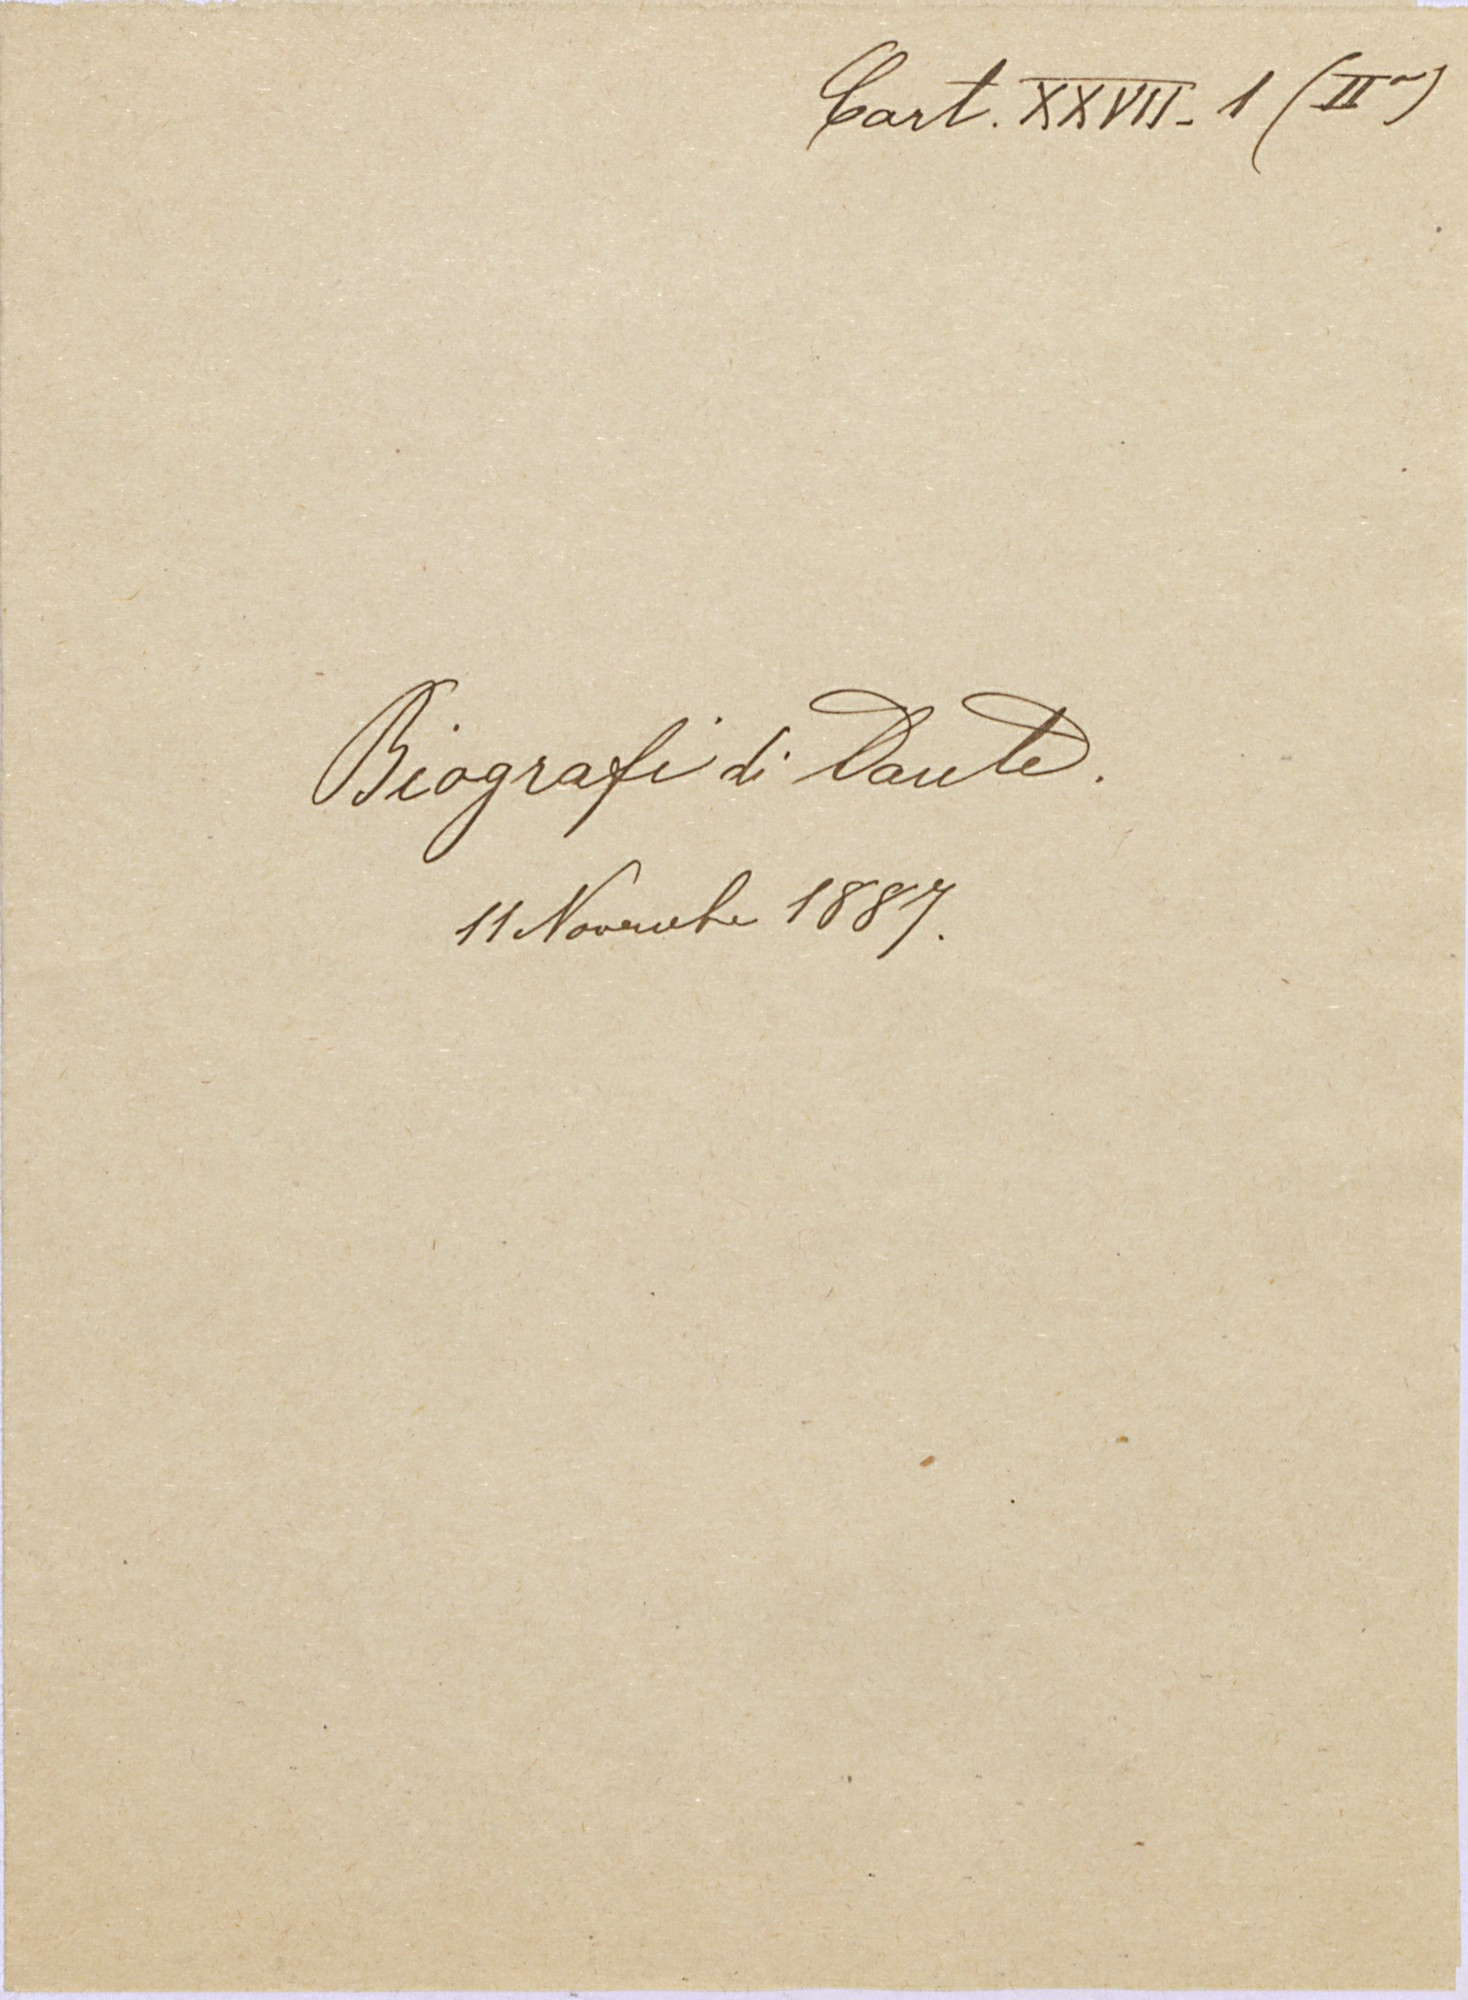 Cart. XXVII - 1 (IIa)
Biografi di Dante.
11 Novembre 1887.